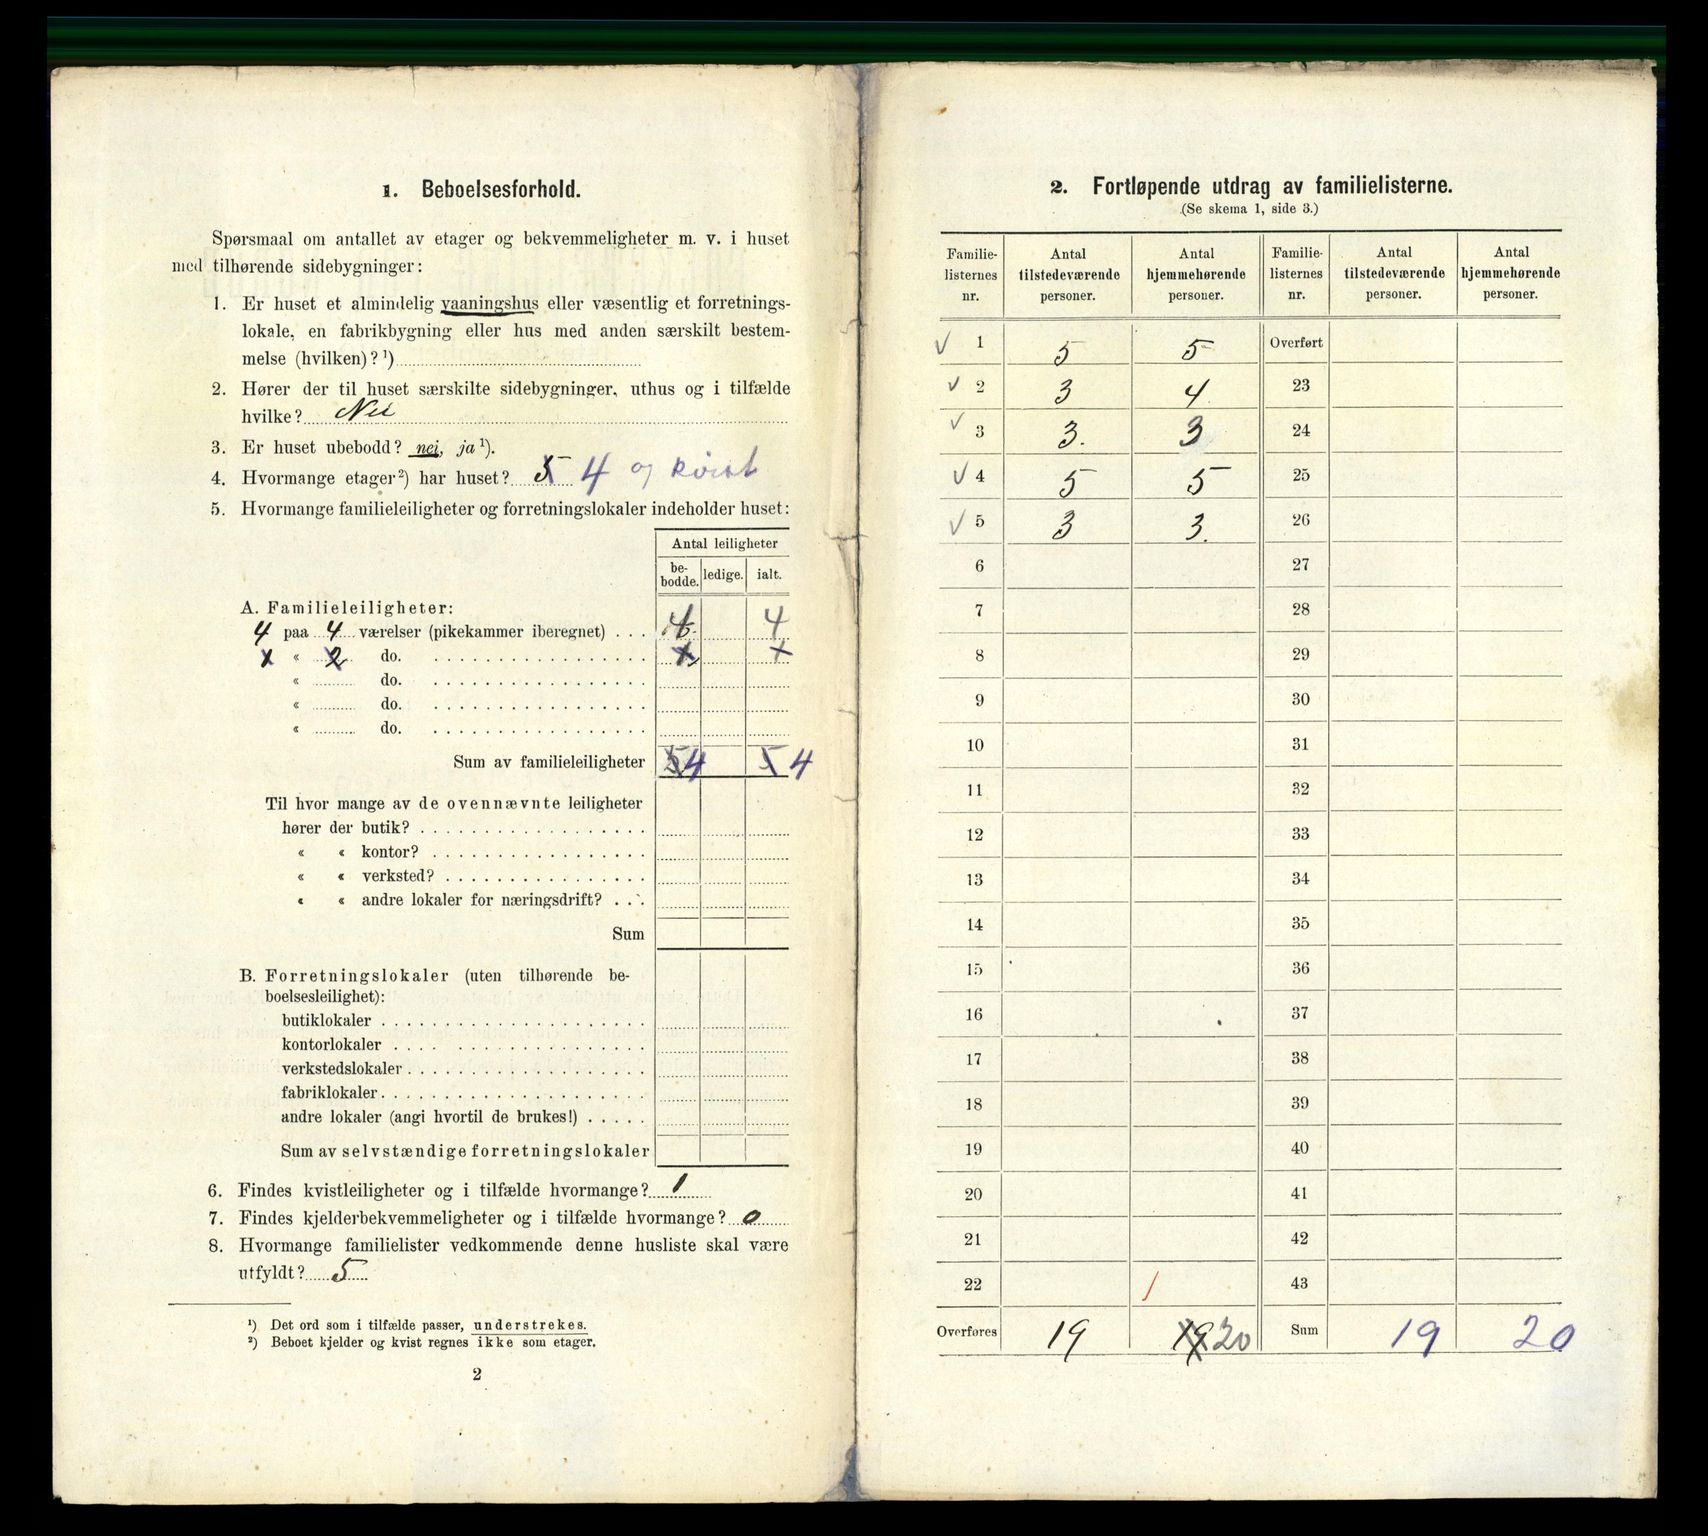 1. Beboelsesforhold.
Spørsmaal om antallet av etager og bekvemmeligheter m. v. i huset
med tilhørende sidebygninger:
1. Er huset et almindelig vaaningshus eller væsentlig et forretnings-
lokale, en fabrikbygning eller hus med anden særskilt bestem-
melse (hvilken)?¹)
2. Hører der til huset særskilte sidebygninger, uthus og i tilfælde
hvilke? Nei
3. Er huset ubebodd? nei, ja¹).
4. Hvormange etager²) har huset? 5 4 og kvist
5. Hvormange familieleiligheter og forretningslokaler indeholder huset:
Antal leiligheter
be-
bodde. ledige. ialt.
A. Familieleiligheter:
4 paa 4 værelser (pikekammer iberegnet) . . . 4 4
x « 2 do. x x
« do.
« do.
« do.
Sum av familieleiligheter 5 4 5 4
Til hvor mange av de ovennævnte leiligheter
hører der butik?
« « kontor?
« « verksted?
« « andre lokaler for næringsdrift?
Sum
B. Forretningslokaler (uten tilhørende be-
boelsesleilighet):
butiklokaler
kontorlokaler
verkstedslokaler
fabriklokaler
andre lokaler (angi hvortil de brukes!)
Sum av selvstændige forretningslokaler
6. Findes kvistleiligheter og i tilfælde hvormange? 1
7. Findes kjelderbekvemmeligheter og i tilfælde hvormange? 0
8. Hvormange familielister vedkommende denne husliste skal være
utfyldt? 5
¹) Det ord som i tilfælde passer, understrekes.
²) Beboet kjelder og kvist regnes ikke som etager.
2
2. Fortløpende utdrag av familielisterne.
(Se skema 1, side 3.)
Familie- Antal Antal Familie- Antal Antal
listernes tilstedeværende hjemmehørende listernes tilstedeværende hjemmehørende
nr. personer. personer. nr. personer. personer.
✓ 1 5 5 Overført
✓ 2 3 4 23
✓ 3 3. 3 24
✓ 4 5 5 25
✓ 5 3 3. 26
6 27
7 28
8 29
9 30
10 31
11 32
12 33
13 34
14 35
15 36
16 37
17 38
18 39
19 40
20 41
21 42
22 / 43
Overføres 19 19 20 Sum 19 20